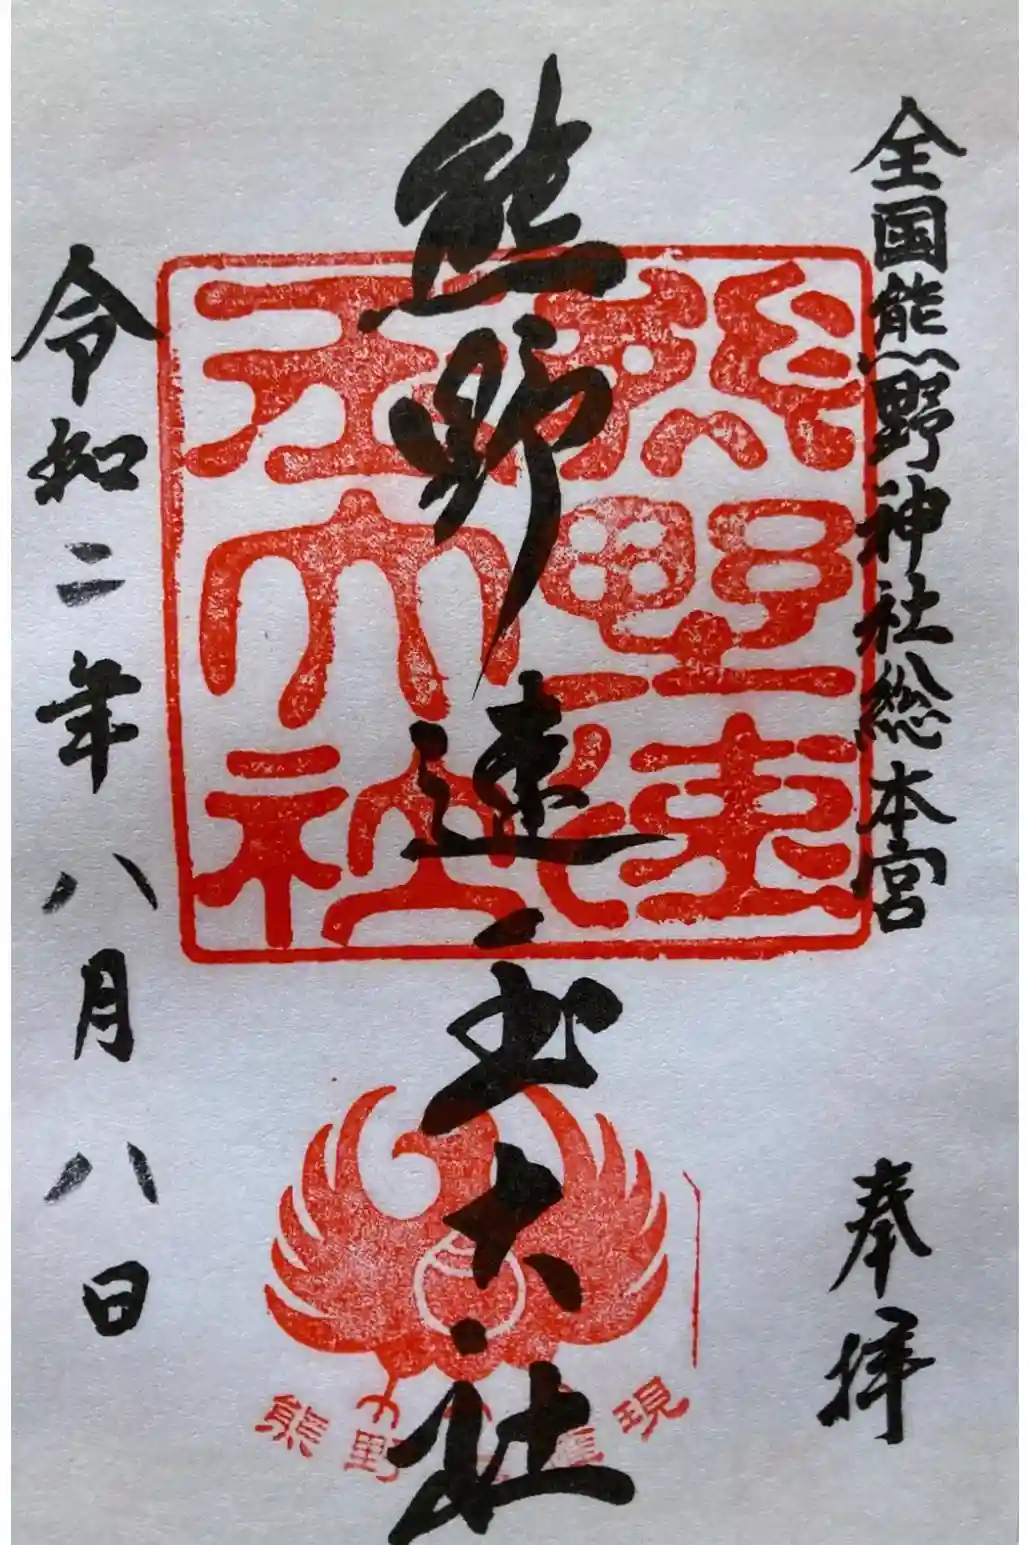 全国熊野神社総本宮
奉拝
熊野速玉大社
熊野速
玉大社
熊野権現
令和二年八月八日